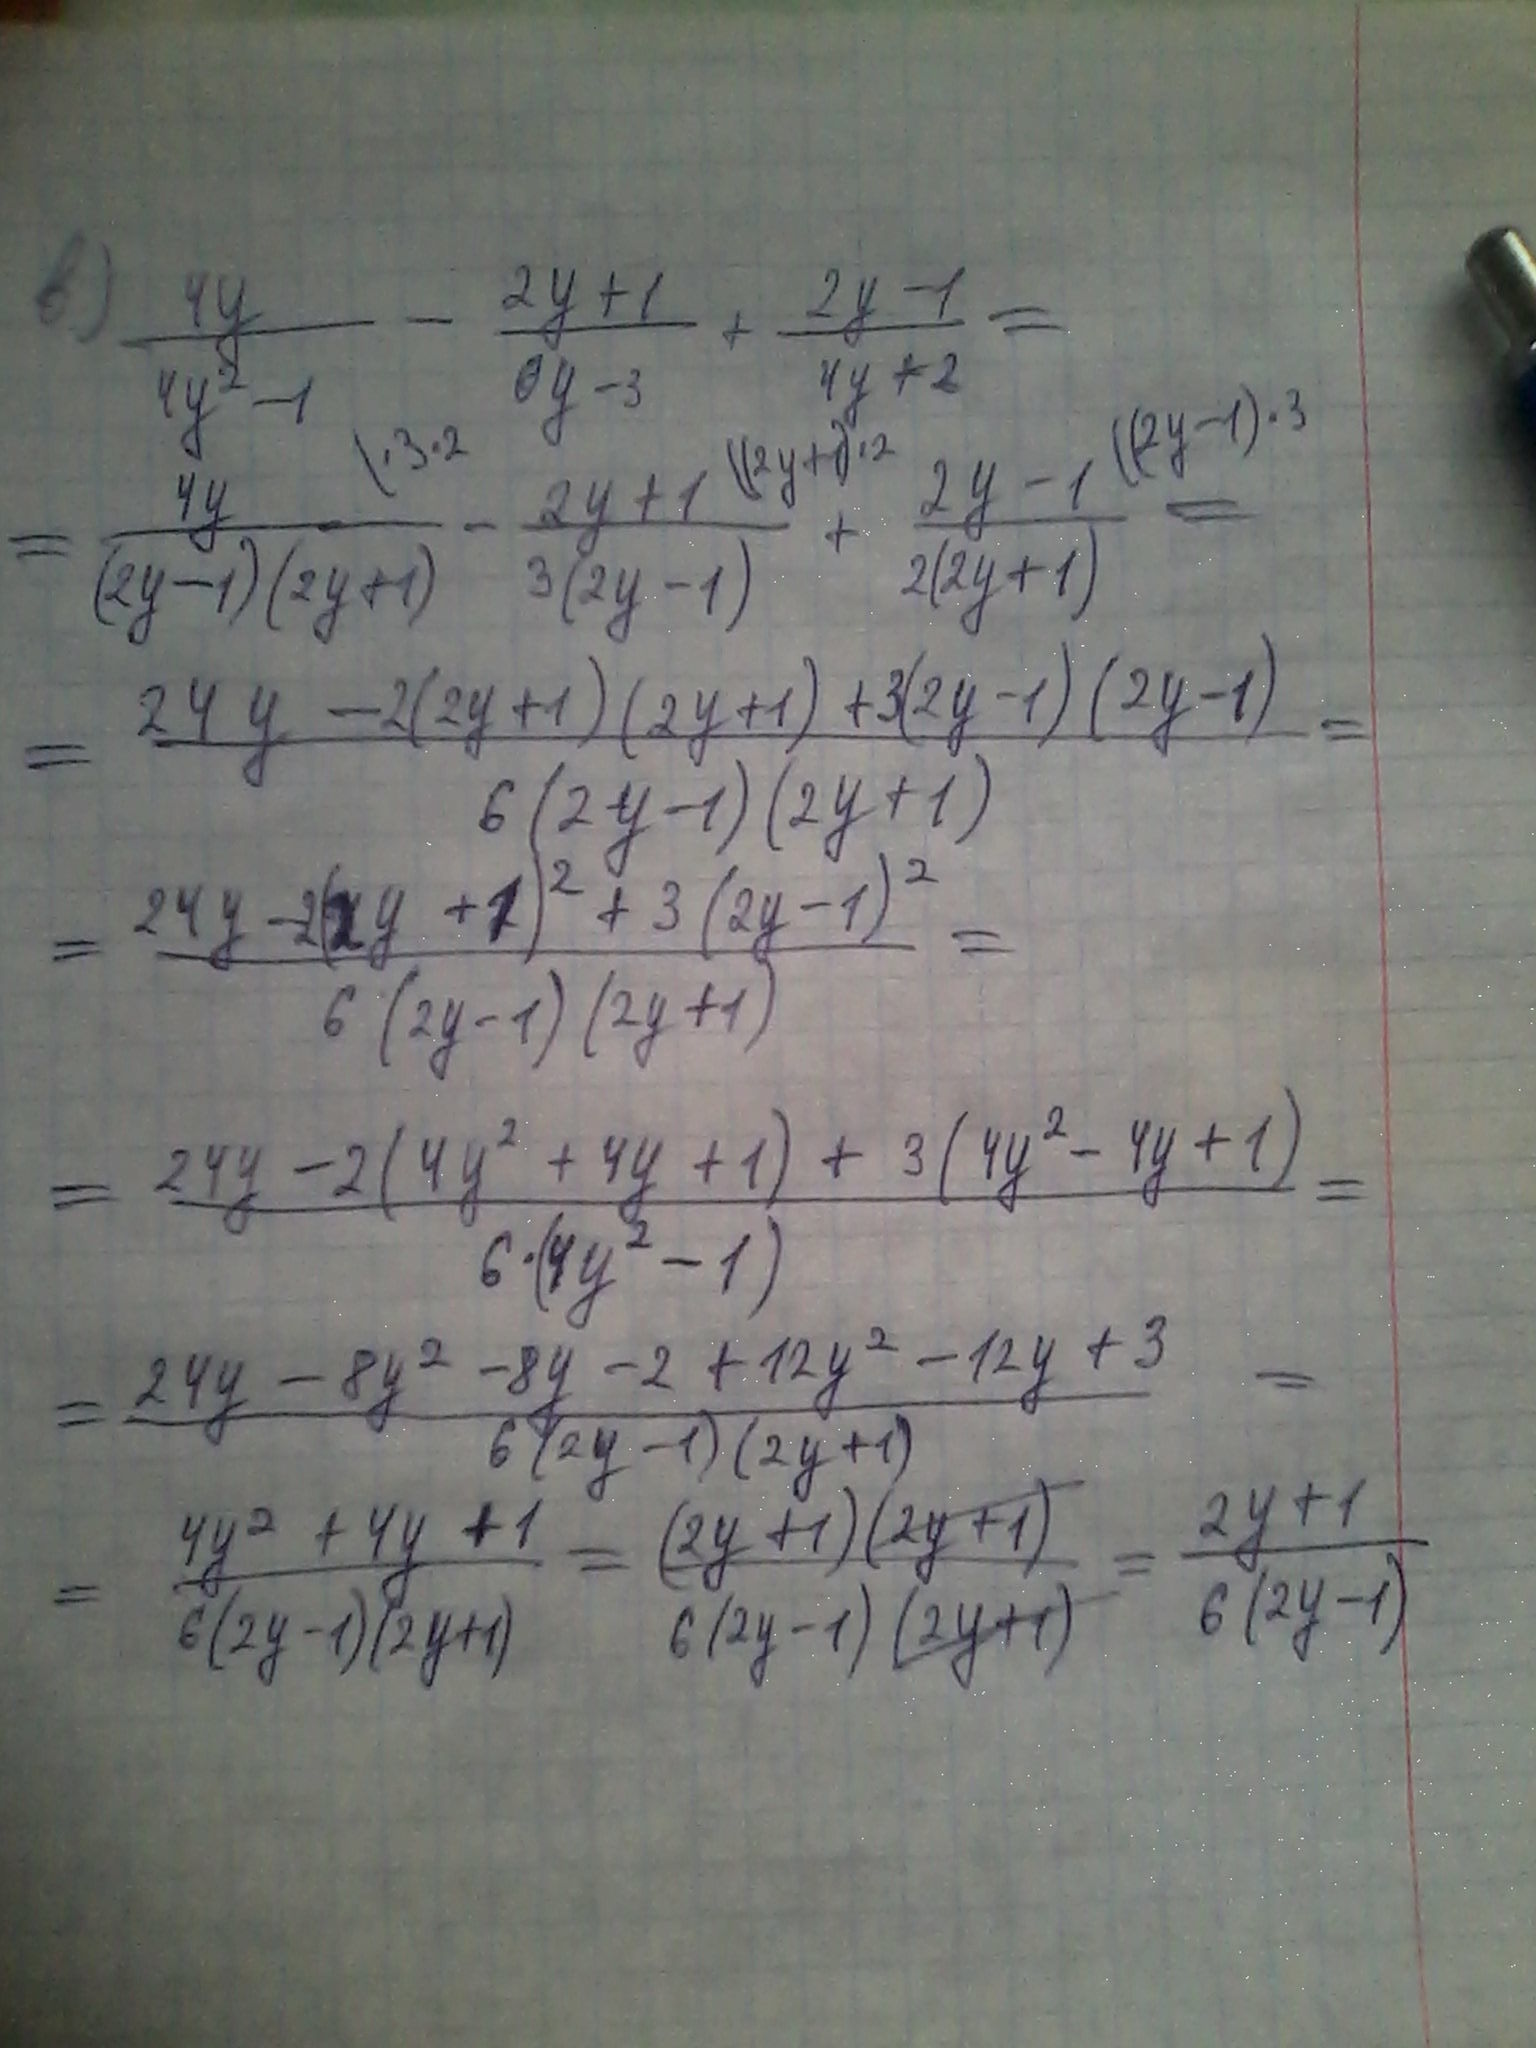 в) 4y/(4y² - 1) - (2y + 1)/(6y - 3) + (2y - 1)/(4y + 2) =
= 4y/((2y - 1)(2y + 1)) \·3·2 - (2y + 1)/(3(2y - 1)) \(2y + 1)·2 + (2y - 1)/(2(2y + 1)) \(2y - 1)·3 =
= (24y - 2(2y + 1)(2y + 1) + 3(2y - 1)(2y - 1))/(6(2y - 1)(2y + 1)) =
= (24y - 2(2y + 1)² + 3(2y - 1)²)/(6(2y - 1)(2y + 1)) =
= (24y - 2(4y² + 4y + 1) + 3(4y² - 4y + 1))/(6·(4y² - 1)) =
= (24y - 8y² - 8y - 2 + 12y² - 12y + 3)/(6(2y - 1)(2y + 1)) =
= (4y² + 4y + 1)/(6(2y - 1)(2y + 1)) = ((2y + 1)(2y + 1))/(6(2y - 1)(2y + 1)) = (2y + 1)/(6(2y - 1))